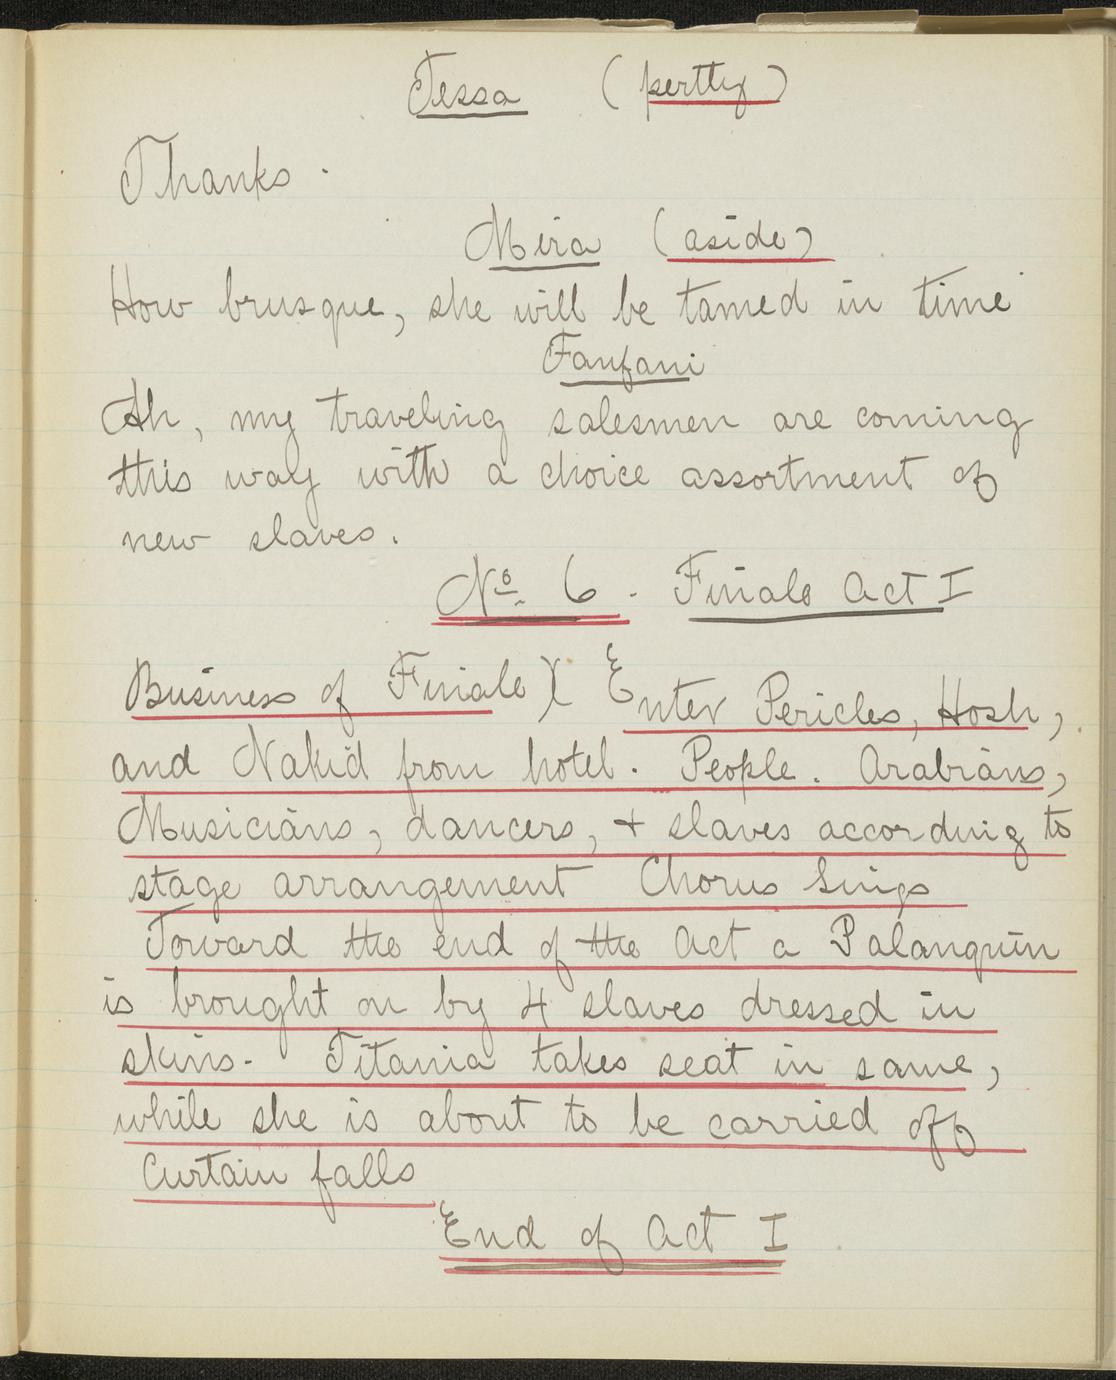 Tessa (pertly)
Thanks.
Mira (aside)
How brusque, she will be tamed in time
Fanfani
Ah, my traveling salesmen are coming
this way with a choice assortment of
new slaves.
No. 6. Finale Act I
Business of Finale)( Enter Pericles, Hosh,
and Nakid from hotel. People. Arabians,
Musicians, dancers, + slaves according to
stage arrangement Chorus Sings
Toward the end of the Act a Palanquin
is brought on by 4 slaves dressed in
skins- Titania takes seat in same,
while she is about to be carried off
Curtain falls
End of Act I